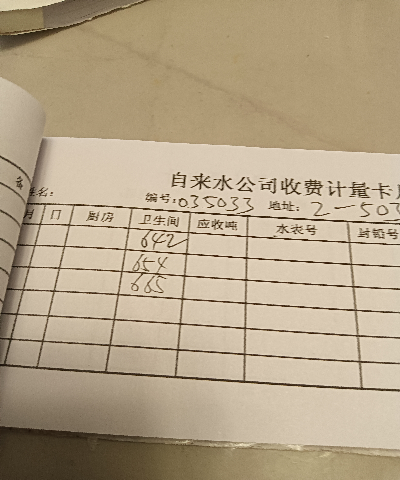 自来水公司收费计量卡
姓名: 编号:035033 地址: 2-503
月 日 厨房 卫生间 应收吨 水表号 封铅号
642
654
665